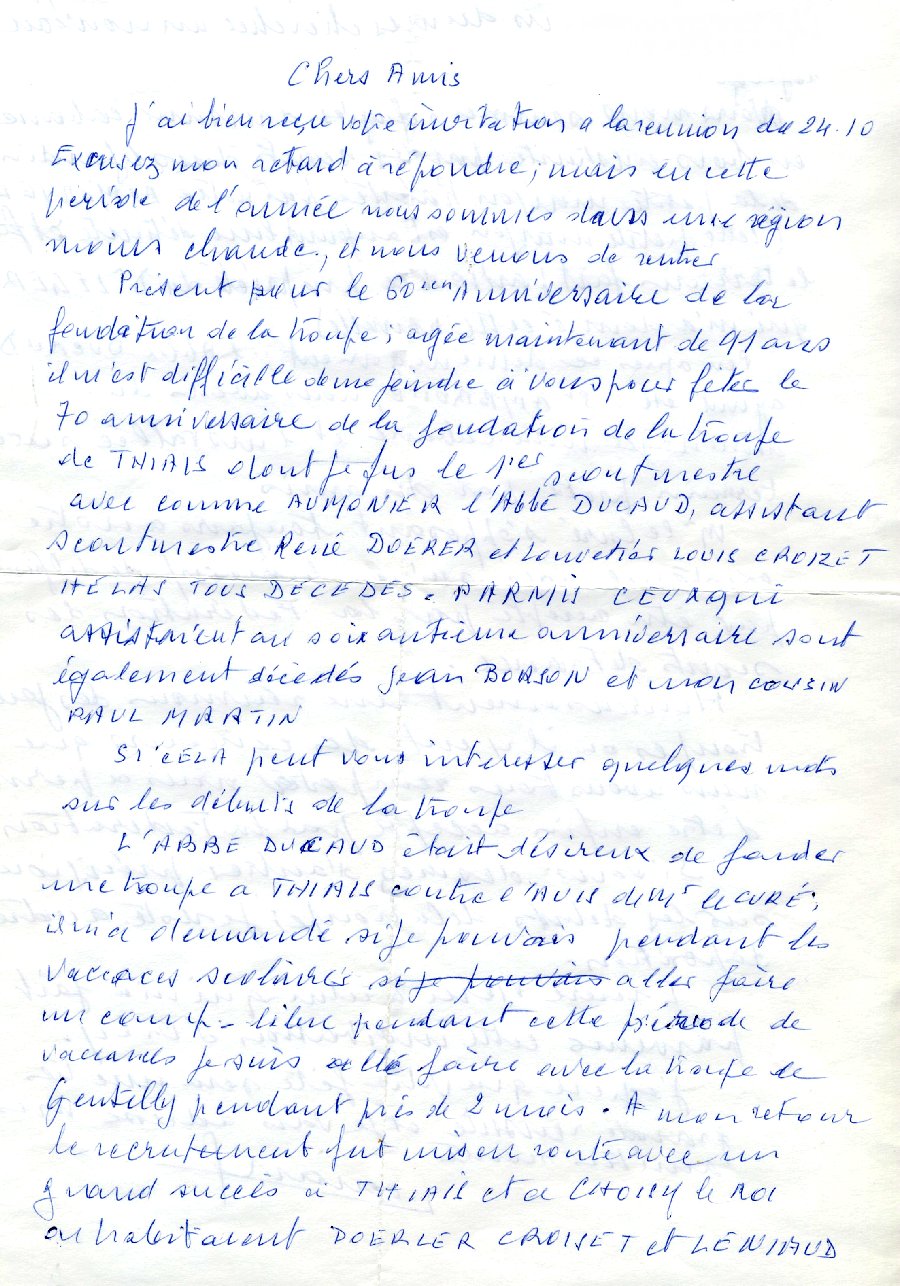 Chers Amis
J'ai bien reçu votre invitation a la reunion du 24.10
Excusez mon retard à répondre; mais en cette
période de l'année nous sommes dans une région
moins chaude, et nous venons de rentrer
Présent pour le 60ième Anniversaire de la
fondation de la troupe; agée maintenant de 91 ans
il m'est difficile de me joindre à vous pour fêter le
70 anniversaire de la fondation de la troupe
de THIAIS dont je fus le 1er scoutmestre
avec comme AUMONIER l'Abbé DUCAUD, assistant
scoutmestre René DOERER et louvetier LOUIS CROIZET
HELAS TOUS DECEDES. PARMIS CEUX QUI
assistaient au soixantieme anniversaire sont
également décedés Jean BORSON et mon COUSIN
PAUL MARTIN
SI CELA peut vous interesser quelques mots
sur les débuts de la troupe
L'ABBE DUCAUD était désireux de fonder
une troupe a THIAIS contre l'AVIS de Mr le CURÉ;
il m'a demandé si je pouvais pendant les
vacances scolaires si je pouvais aller faire
un camp - libre pendant cette période de
vacances je suis allé faire avec la troupe de
Gentilly pendant près de 2 mois. A mon retour
le recrutement fut mis en route avec un
grand succès à THIAIS et a CHOISY le ROI
ou habitaient DOERLER CROISET et LENIAUD